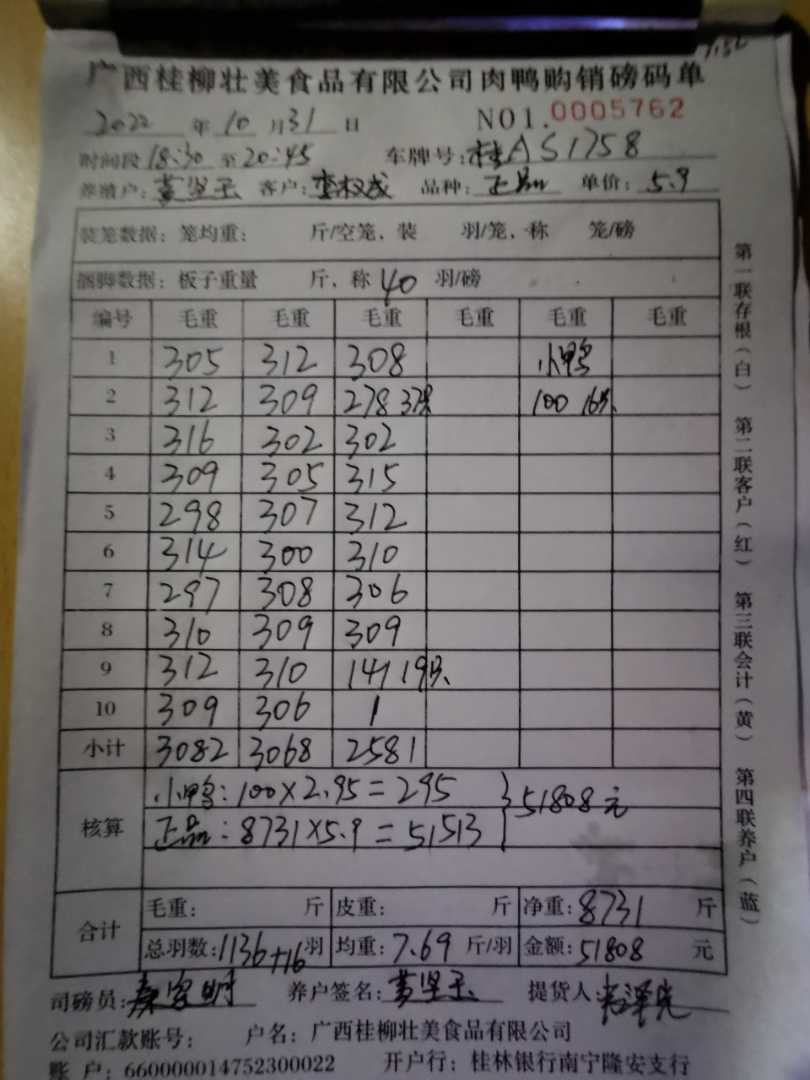 广西桂柳壮美食品有限公司肉鸭购销磅码单
2022年10月31日 NO1.0005762
时间段18:30至20:45 车牌号:桂AS1758
养殖户:黄坚玉 客户:李权成 品种:正品 单价:5.9
装笼数据:笼均重: 斤/空笼、装 羽/笼、称 笼/磅
捆脚数据:板子重量 斤、称40羽/磅
编号 毛重 毛重 毛重 毛重 毛重 毛重
1 305 312 308 小鸭
2 312 309 278 37只 100 16只
3 316 302 302
4 309 305 315
5 298 307 312
6 314 300 310
7 297 308 306
8 310 309 309
9 312 310 141 19只
10 309 306 1
小计 3082 3068 2581
核算 小鸭:100×2.95=295 51808元
正品:8731×5.9=51513
合计 毛重: 斤 皮重: 斤 净重:8731斤
总羽数:1136+16羽 均重:7.69斤/羽 金额:51808元
司磅员: 养户签名:黄坚玉 提货人:
公司汇款账号: 户名:广西桂柳壮美食品有限公司
账户:660000014752300022 开户行:桂林银行南宁隆安支行
第一联存根(白) 第二联客户(红) 第三联会计(黄) 第四联养户(蓝)